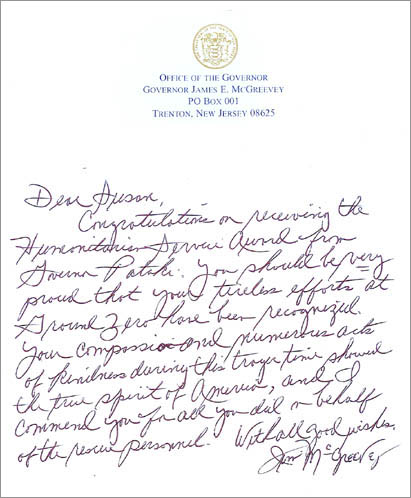 OFFICE OF THE GOVERNOR
GOVERNOR JAMES E. MCGREEVEY
PO BOX 001
TRENTON, NEW JERSEY 08625
Dear Susan,
Congratulations on receiving the
Humanitarian Service Award from
Governor Pataki. You should be very
proud that your tireless efforts at
Ground Zero have been recognized.
Your compassion and numerous acts
of kindness during this tragic time showed
the true spirit of America, and I
commend you for all you did on behalf
of the rescue personnel. With all good wishes,
Jim McGreevey